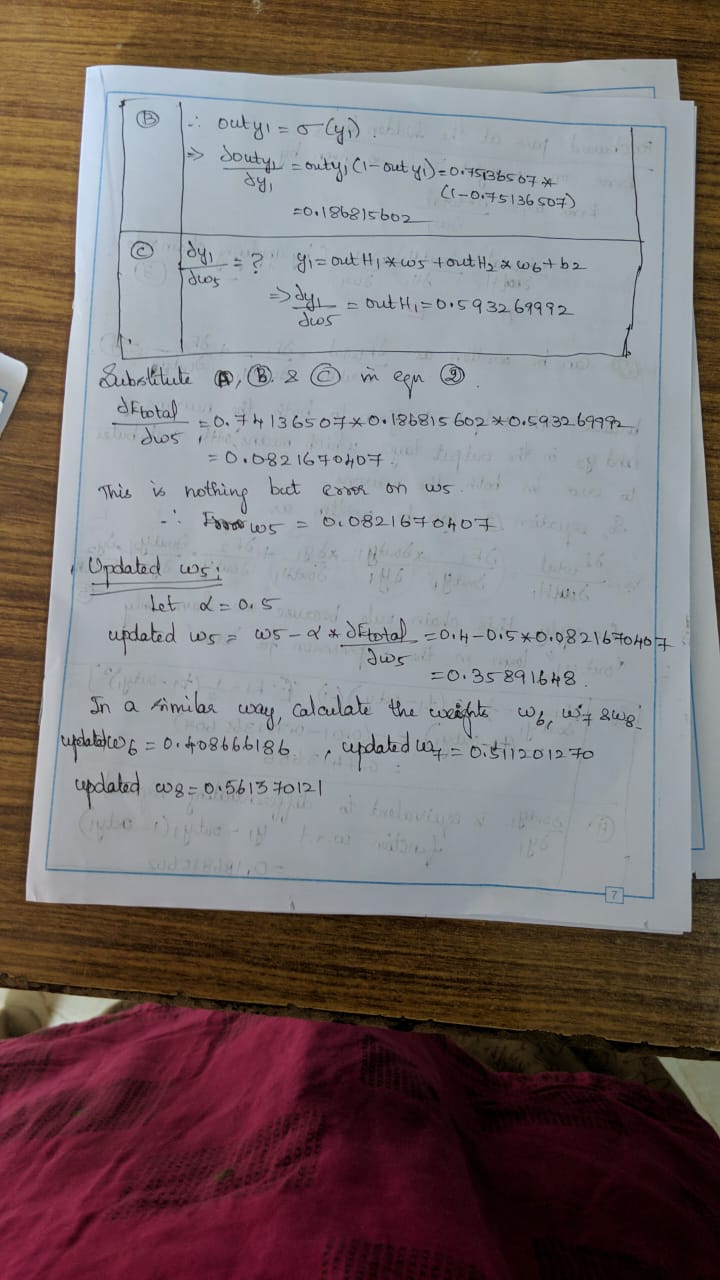 Ⓑ ∴ out y₁ = σ(y₁).
⇒ ∂outy₁/∂y₁ = outy₁(1-outy₁) = 0.75136507 *
(1-0.75136507)
= 0.186815602
Ⓒ ∂y₁/∂w5 = ? y₁ = outH₁ * w5 + outH₂ * w6 + b2
⇒ ∂y₁/∂w5 = outH₁ = 0.593269992
Substitute Ⓐ, Ⓑ & Ⓒ in eqn ②.
∂Etotal/∂w5 = 0.74136507 * 0.186815602 * 0.593269992
= 0.0821670407.
This is nothing but error on w5.
∴ Error w5 = 0.0821670407
Updated w5:
Let α = 0.5
updated w5 = w5 - α * ∂Etotal/∂w5 = 0.4 - 0.5 * 0.0821670407
= 0.35891648.
In a similar way, calculate the weights w6, w7 & w8.
updated w6 = 0.408666186, updated w7 = 0.511201270
updated w8 = 0.561370121
7